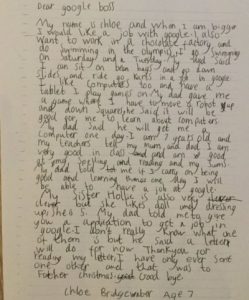 Dear google boss
My name is chloe and when I am bigger
I would like a job with google. I also
want to work in a chocolate factory and
do swimming in the olympics. I go swimming
on saturday and a Tuesday. My Dad said
I can sit on bean bags and go down
slides and ride go karts in a job in google.
I like computers too and have a
tablet I play games on. My dad gave me
a game where I have to move a robot up
and down squares, he said it will be
good for me to learn about computers.
My dad said he will get me a
computer one day. I am 7 years old and
my teachers tell my mum and dad I am
very good in class and am good
at my spelling and reading and my sums.
My dad told me if I carry on being
good and learning then one day I will
be able to have a job at google.
My sister Hollie is also very
clever but she likes dolls and dressing
up, she is 5. My dad told me to give
you a application to get a job in
google. I don't really know what one
of them is but he said a letter
will do for now. Thank you for
reading my letter, I have only ever sent
one other and that was to
Father christmas. Good bye.
Chloe Bridgewater Age 7